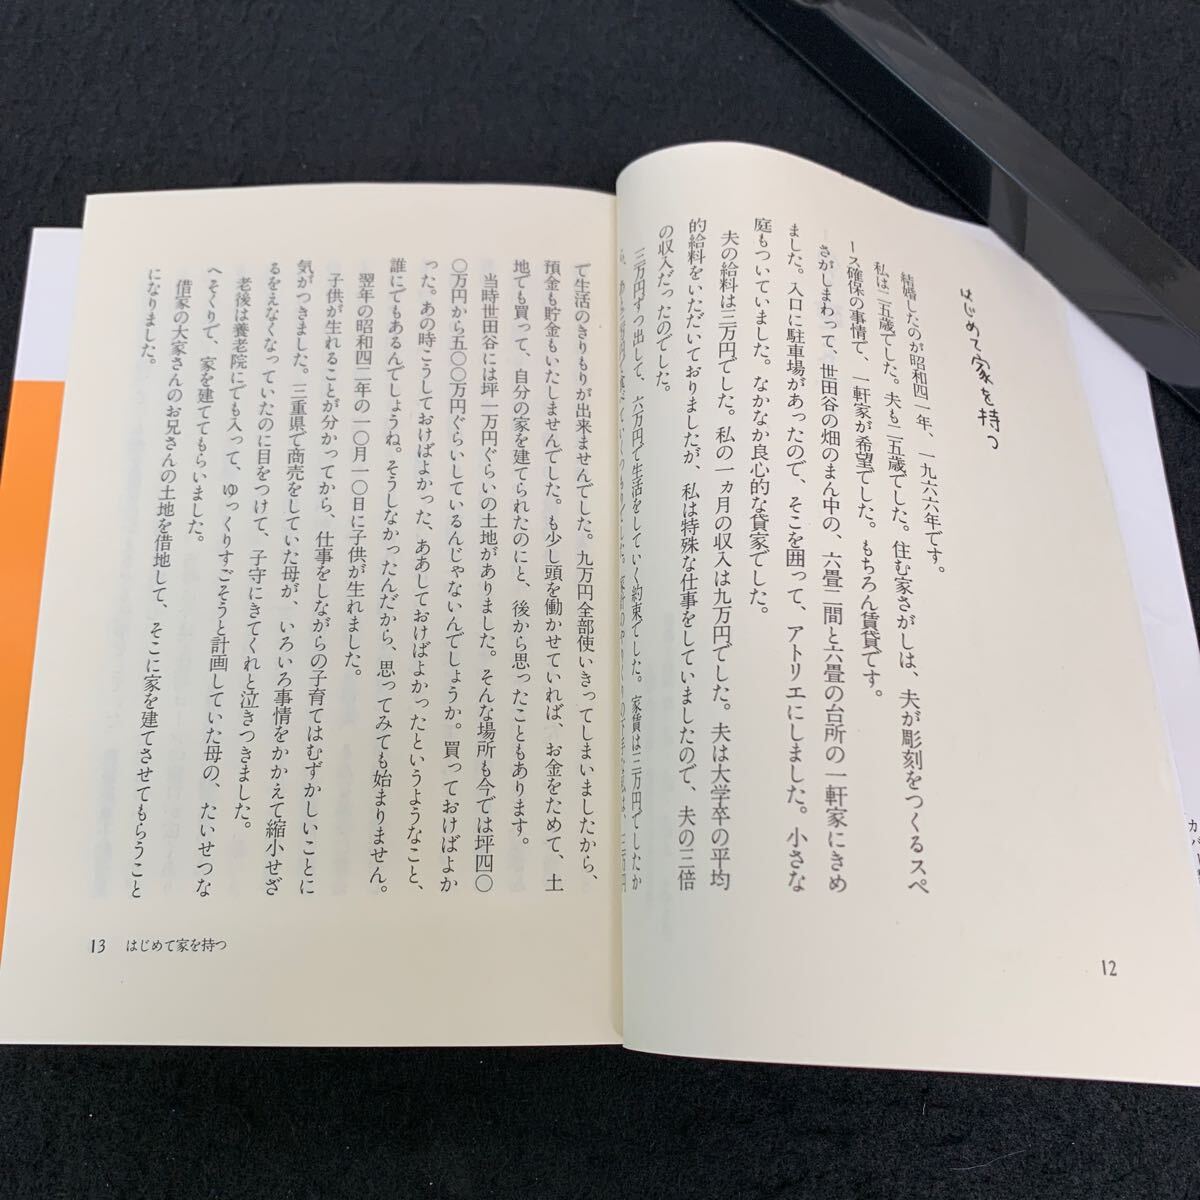 はじめて家を持つ
結婚したのが昭和四一年、一九六六年です。
私は二五歳でした。夫も二五歳でした。住む家さがしは、夫が彫刻をつくるスペ
ース確保の事情で、一軒家が希望でした。もちろん賃貸です。
さがしまわって、世田谷の畑のまん中の、六畳二間と六畳の台所の一軒家にきめ
ました。入口に駐車場があったので、そこを囲って、アトリエにしました。小さな
庭もついていました。なかなか良心的な貸家でした。
夫の給料は三万円でした。私の一ヵ月の収入は九万円でした。夫は大学卒の平均
的給料をいただいておりましたが、私は特殊な仕事をしていましたので、夫の三倍
の収入だったのでした。
三万円ずつ出して、六万円で生活をしていく約束でした。家賃は三万円でしたか
12
で生活のきりもりが出来ませんでした。九万円全部使いきってしまいましたから、
預金も貯金もいたしませんでした。も少し頭を働かせていれば、お金をためて、土
地でも買って、自分の家を建てられたのにと、後から思ったこともあります。
当時世田谷には坪一万円ぐらいの土地がありました。そんな場所も今では坪四〇
〇万円から五〇〇万円ぐらいしているんじゃないんでしょうか。買っておけばよか
った。あの時こうしておけばよかった、ああしておけばよかったというようなこと、
誰にでもあるんでしょうね。そうしなかったんだから、思ってみても始まりません。
翌年の昭和四二年の一〇月一〇日に子供が生れました。
子供が生れることが分かってから、仕事をしながらの子育てはむずかしいことに
気がつきました。三重県で商売をしていた母が、いろいろ事情をかかえて縮小せざ
るをえなくなっていたのに目をつけて、子守にきてくれと泣きつきました。
老後は養老院にでも入って、ゆっくりすごそうと計画していた母の、たいせつな
へそくりで、家を建ててもらいました。
借家の大家さんのお兄さんの土地を借地して、そこに家を建てさせてもらうこと
になりました。
13 はじめて家を持つ